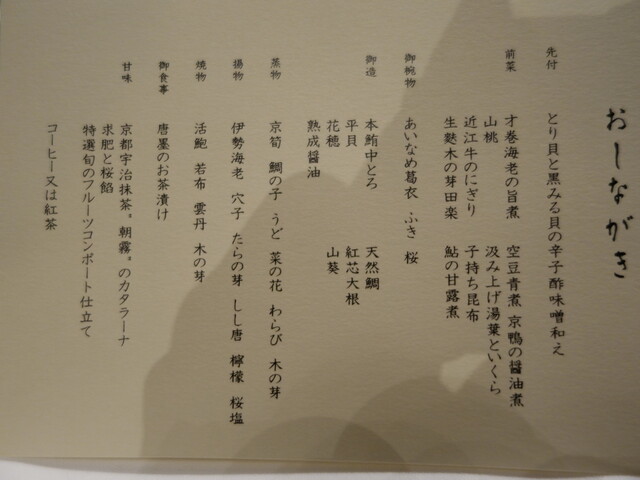 おしながき
先付 とり貝と黒みる貝の辛子酢味噌和え
前菜 才巻海老の旨煮 空豆青煮 京鴨の醤油煮
山桃 汲み上げ湯葉といくら
近江牛のにぎり 子持ち昆布
生麩木の芽田楽 鮎の甘露煮
御椀物 あいなめ葛衣 ふき 桜
御造 本鮪中とろ 天然鯛
平貝 紅芯大根
花穂 山葵
熟成醤油
蒸物 京筍 鯛の子 うど 菜の花 わらび 木の芽
揚物 伊勢海老 穴子 たらの芽 しし唐 檸檬 桜塩
焼物 活鮑 若布 雲丹 木の芽
御食事 唐墨のお茶漬け
甘味 京都宇治抹茶〝朝霧〟のカタラーナ
求肥と桜餡
特選旬のフルーツコンポート仕立て
コーヒー又は紅茶